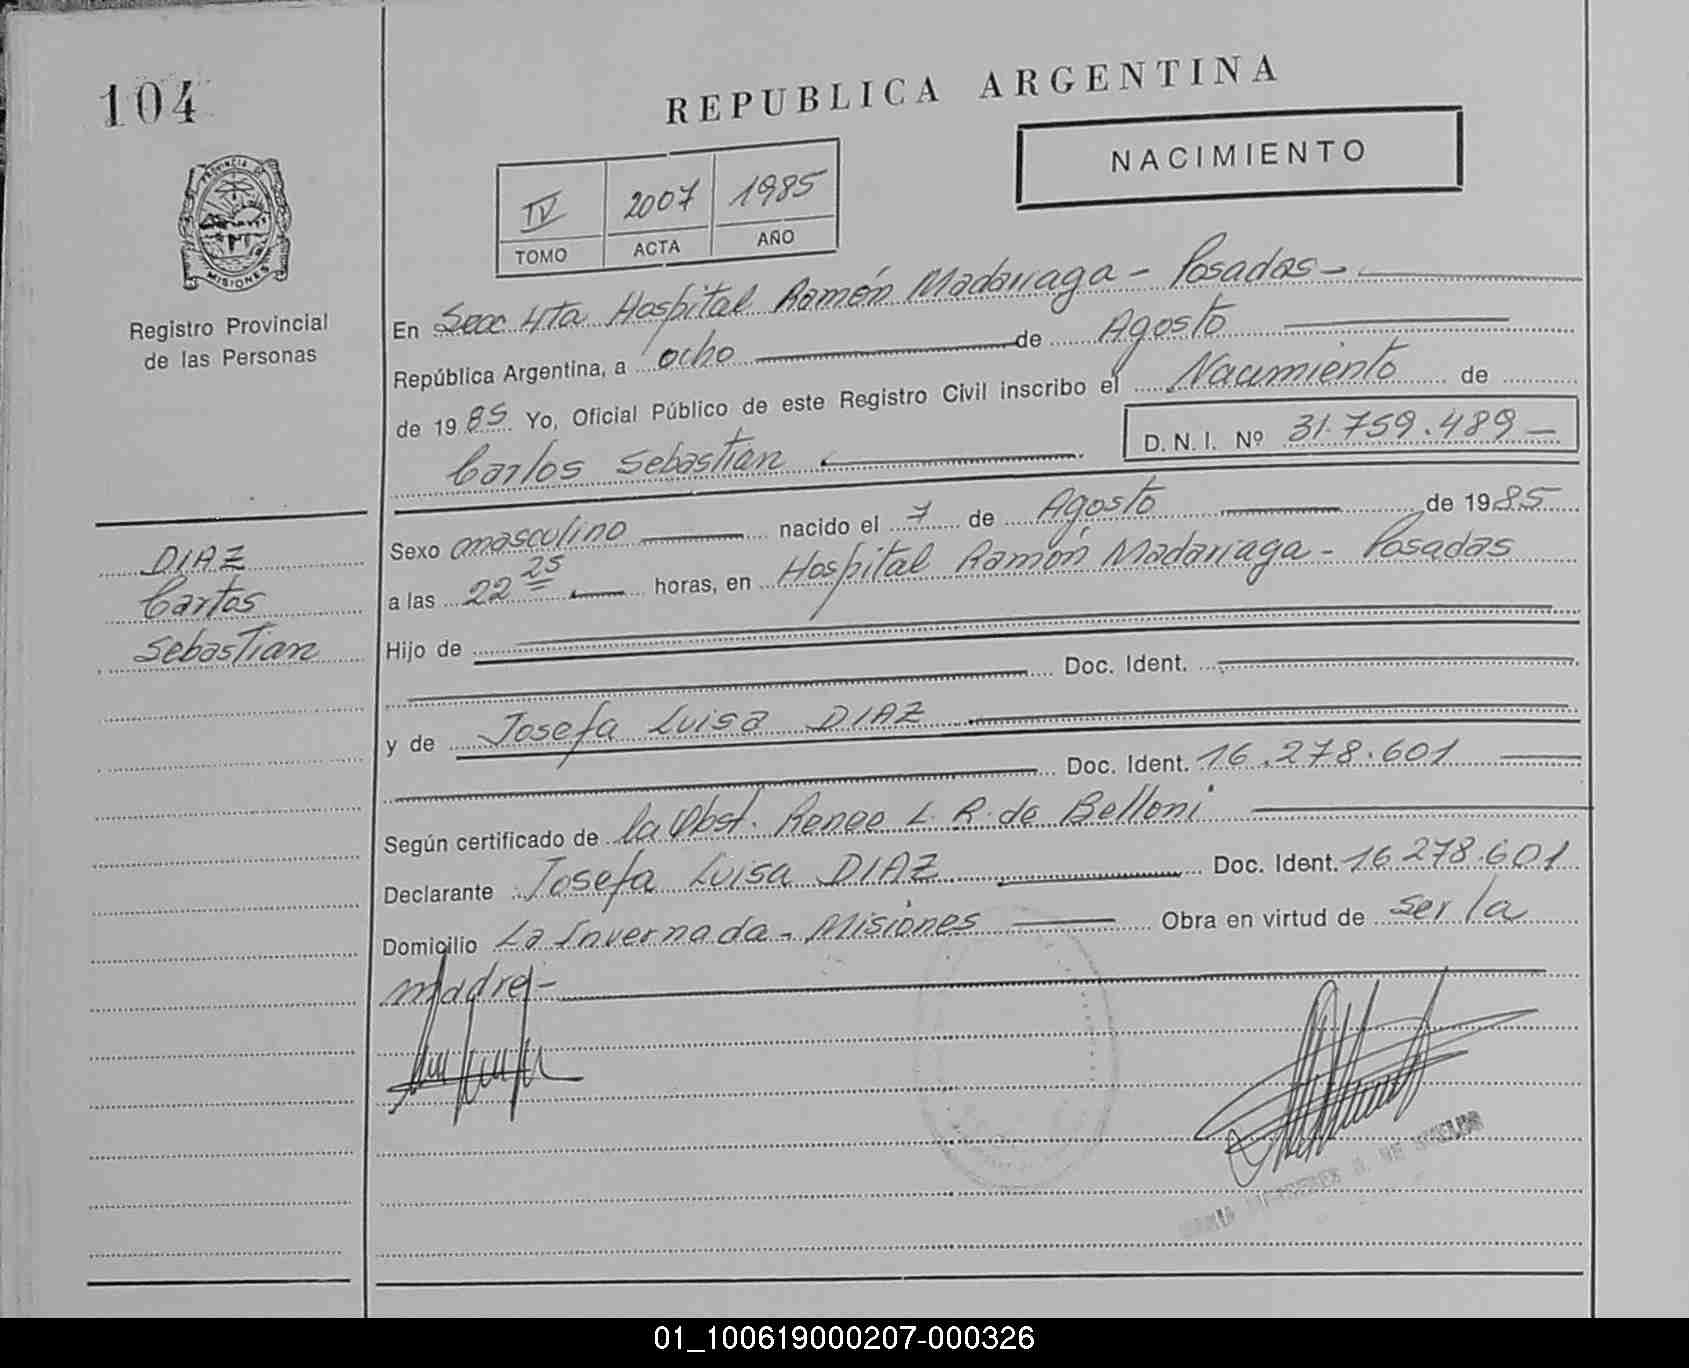 104
REPUBLICA ARGENTINA
NACIMIENTO
IV 2007 1985
TOMO ACTA AÑO
PROVINCIA DE
MISIONES
Registro Provincial
de las Personas
En Secc 4ta Hospital Ramón Madariaga - Posadas -
República Argentina, a ocho de Agosto
de 1985 Yo, Oficial Público de este Registro Civil inscribo el Nacimiento de
Carlos Sebastian D.N.I. Nº 31.759.489 -
Sexo masculino nacido el 7 de Agosto de 1985
a las 22 25 horas, en Hospital Ramón Madariaga - Posadas
Hijo de
Doc. Ident.
y de Josefa Luisa DIAZ
Doc. Ident. 16.278.601
Según certificado de la Obst. Renee L. R. de Belloni
Declarante Josefa Luisa DIAZ Doc. Ident. 16.278.601
Domicilio La Invernada - Misiones Obra en virtud de ser la
madre -
DIAZ
Carlos
Sebastian
MARIA DE
01_100619000207-000326